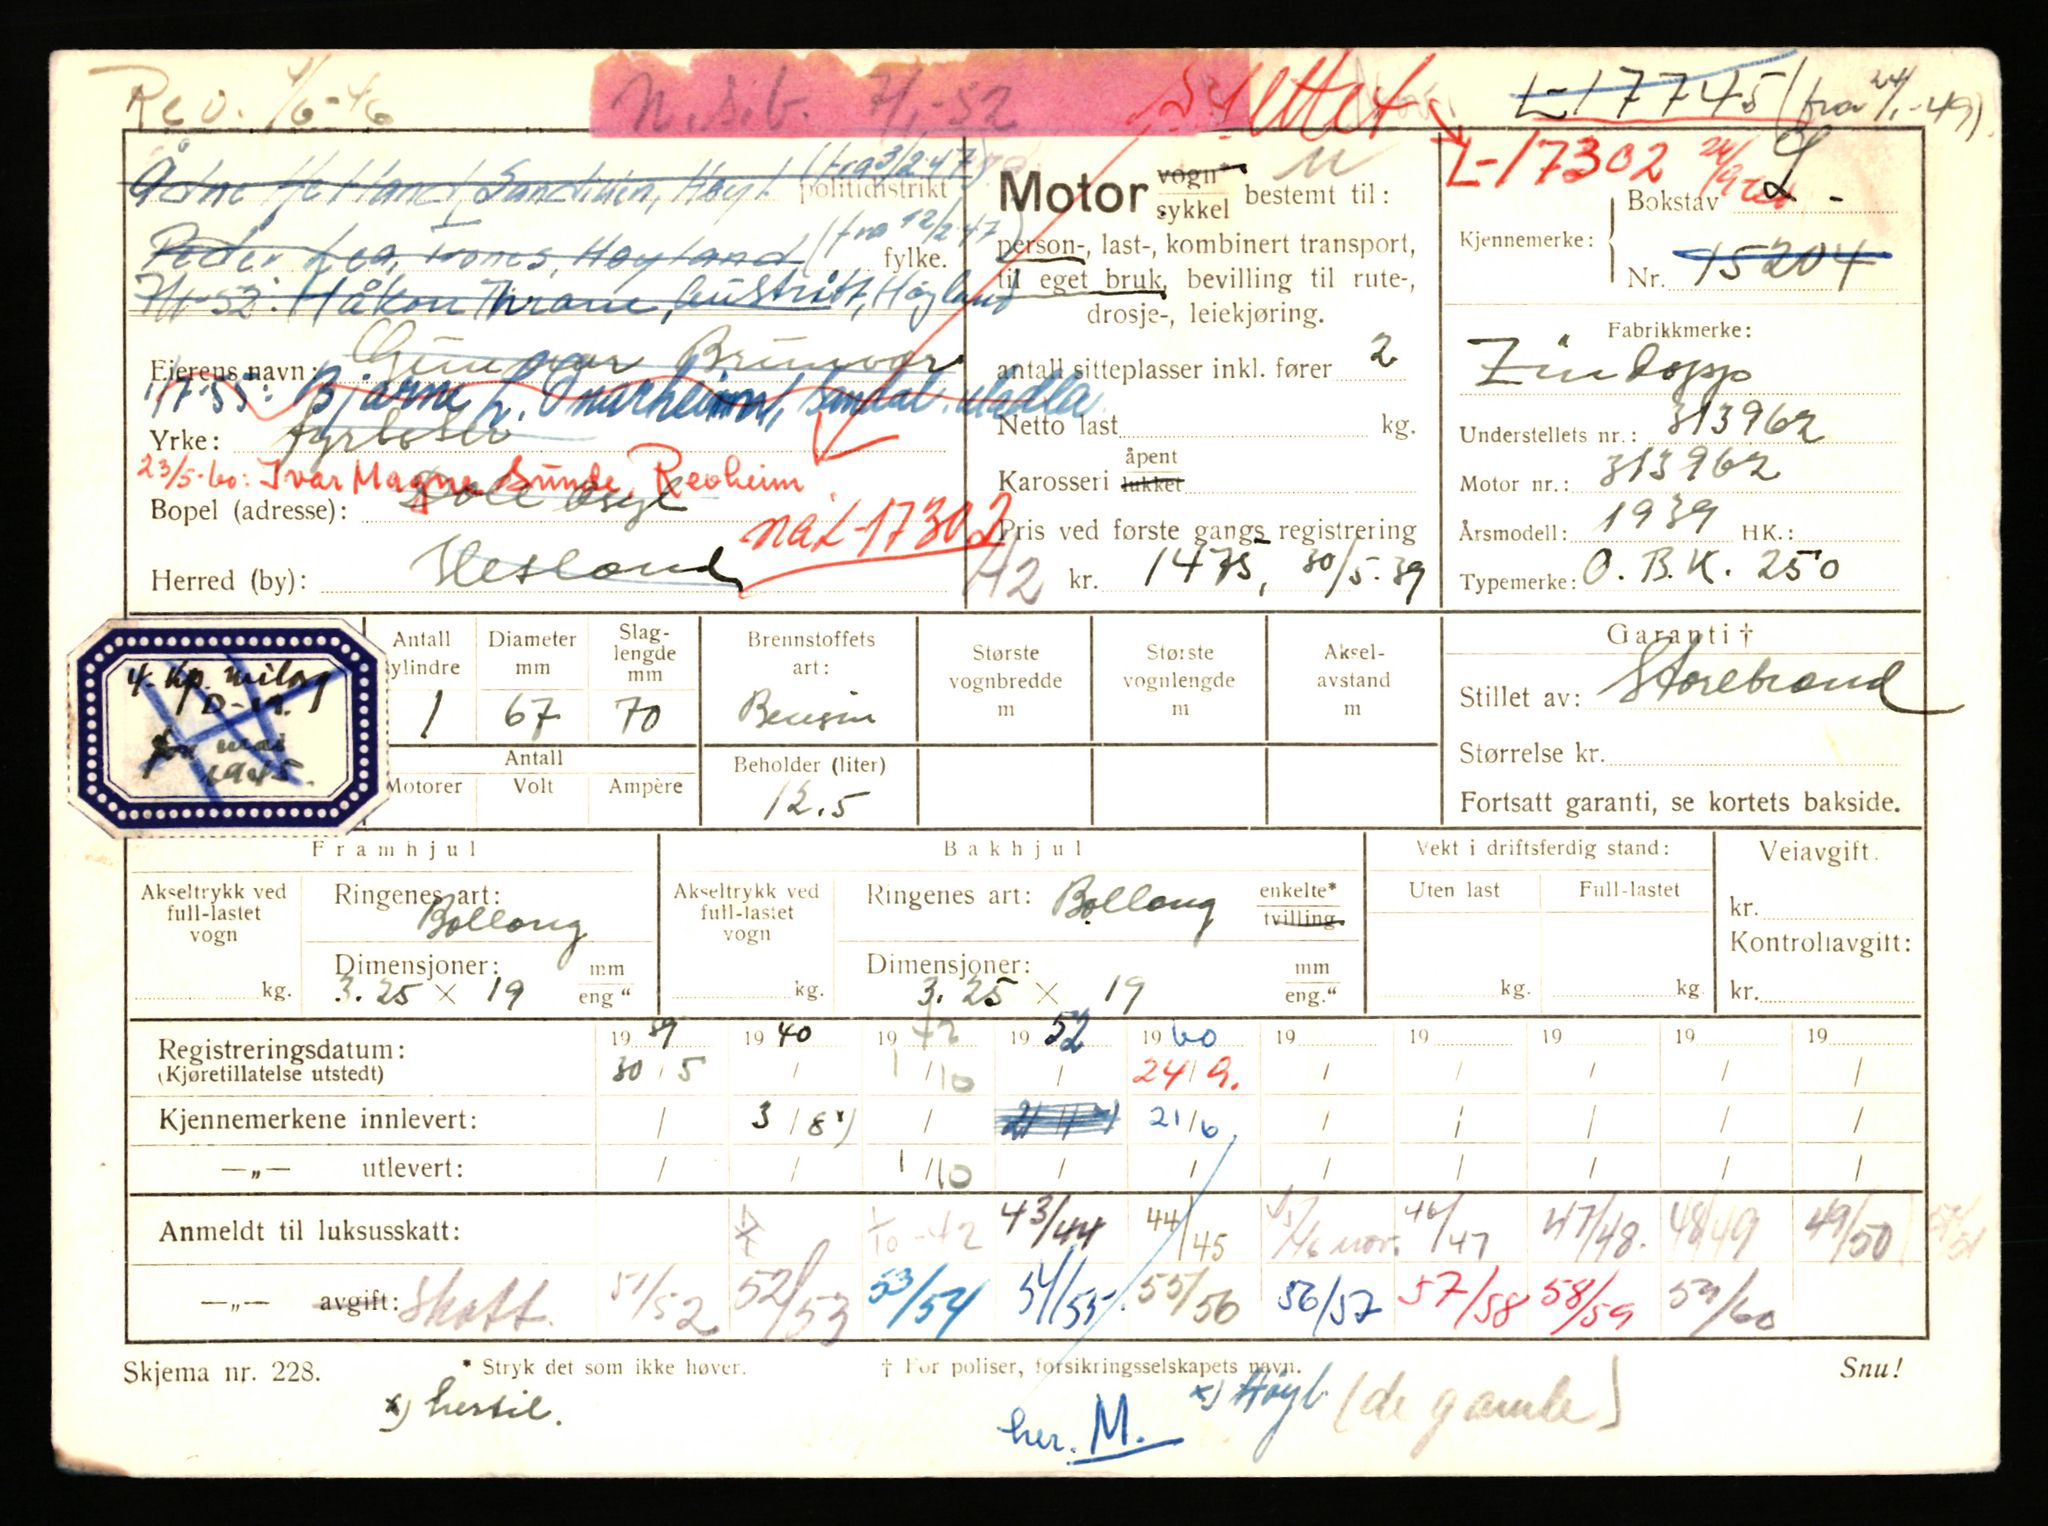 Rev. 4/6-46
N.S.b. 7/1-52
Slettet
L-17745 (fra 24/1-49).
L-17302 24/9-60
Ådne Hetland, Sandvien, Høyl. (fra 3/2-47)
politidistrikt
Peder Lea, Trones, Høyland (fra 12/2-47)
fylke.
7/1-52: Håkon Thrane, Austrått, Høyland
Eierens navn: Gunvar Brunvær
1/7-55: Bjarne L. Onarheim, Sandal, Madla
Yrke: fyrbøter
23/5-60: Ivar Magne Sunde, Revheim
Bopel (adresse):
nå L-17302
Herred (by): Hetland
Motor vogn* sykkel bestemt til:
person-, last-, kombinert transport,
til eget bruk, bevilling til rute-,
drosje-, leiekjøring.
antall sitteplasser inkl. fører 2
Netto last kg.
Karosseri åpent lukket
Pris ved første gangs registrering
42 kr. 1475, 30/5-39
Bokstav L-
Kjennemerke:
Nr. 15204
Fabrikkmerke:
Zündapp
Understellets nr.: 313962
Motor nr.: 313962
Årsmodell: 1939 HK.:
Typemerke: O.B.K. 250
4. kp. milorg
D-19.
før mai
1945.
Antall sylindre 1
Diameter mm 67
Slaglengde mm 70
Brennstoffets art: Bensin
Største vognbredde m
Største vognlengde m
Akselavstand m
Garanti †
Stillet av: Storebrand
Størrelse kr.
Fortsatt garanti, se kortets bakside.
Antall
Motorer Volt Ampère
Beholder (liter) 12.5
Framhjul
Bakhjul
Vekt i driftsferdig stand:
Veiavgift.
Akseltrykk ved full-lastet vogn kg.
Ringenes art: Ballong
Dimensjoner: 3.25 x 19 mm eng"
Akseltrykk ved full-lastet vogn kg.
Ringenes art: Ballong enkelte* tvilling.
Dimensjoner: 3.25 x 19 mm eng."
Uten last kg.
Full-lastet kg.
kr.
Kontrollavgift:
kr.
19 39 19 40 19 42 19 52 19 60 19 19 19 19 19
Registreringsdatum:
(Kjøretillatelse utstedt) 30/5 / 1/10 / 24/9. / / / / /
Kjennemerkene innlevert: / 3/8 x) / 21/11 21/6 / / / / /
—„— utlevert: / / 1/10 / / / / / / /
Anmeldt til luksusskatt: 1/10-42 43/44 44/45 45/46 nov. 46/47 47/48. 48/49 49/50 50/51
—„— avgift: Skatt. 51/52 52/53 53/54 54/55. 55/56 56/57 57/58 58/59 59/60
Skjema nr. 228.
* Stryk det som ikke høver.
† For poliser, forsikringsselskapets navn.
Snu!
x) hersil.
her. M.
x) Høyl. (de gamle)